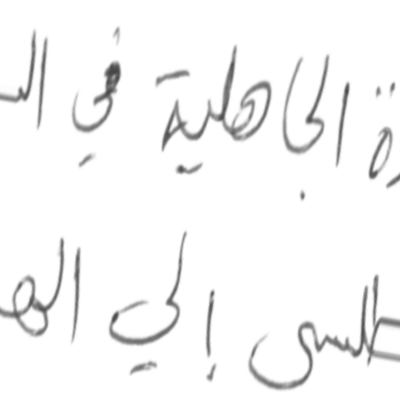 ة الجاهلية في الـ
طلس إلي الهـ